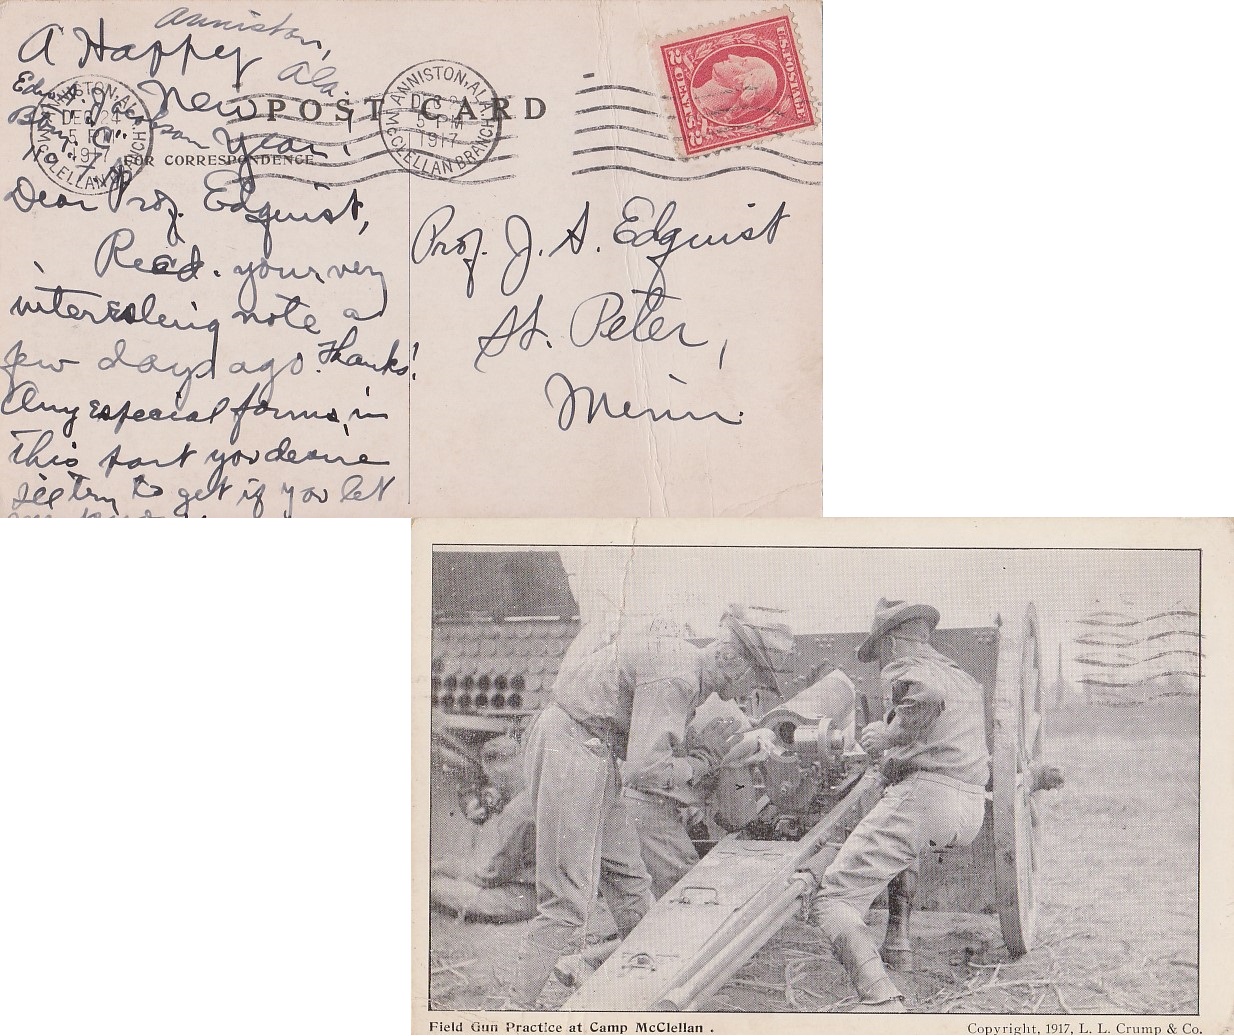 Anniston,
Ala.
A Happy
New
Year.
POST CARD
FOR CORRESPONDENCE
ANNISTON, ALA.
DEC 24
5 PM
1917
McCLELLAN BRANCH
ANNISTON, ALA.
DEC
5 PM
1917
McCLELLAN BRANCH
U.S. POSTAGE
2 CENTS 2
Dear Prof. Edquist,
Recd. your very
interesting note a
few days ago. Thanks!
Any especial forms, in
this part you desire
Ill try to get if you let
Prof. J. A. Edquist
St. Peter,
Minn.
Field Gun Practice at Camp McClellan .
Copyright, 1917, L. L. Crump & Co.